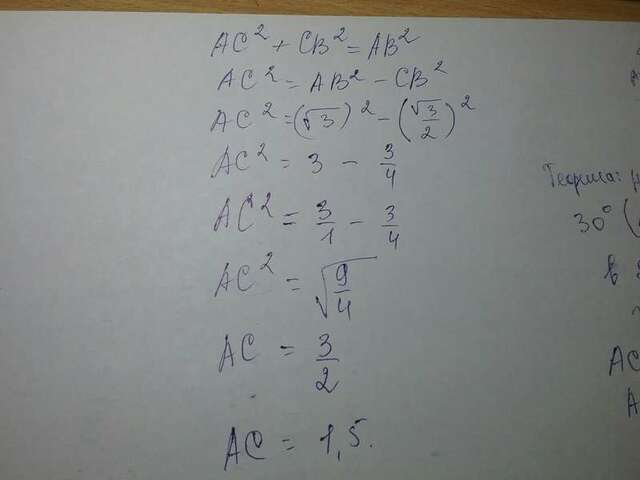 AC² + CB² = AB²
AC² = AB² - CB²
AC² = (√3)² - (√3/2)²
AC² = 3 - 3/4
AC² = 3/1 - 3/4
AC² = √9/4
AC = 3/2
AC = 1,5.
Теорема:
30° (
в
AC
A